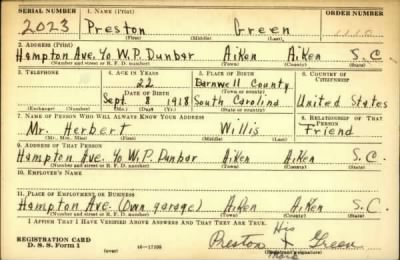 SERIAL NUMBER 1. NAME (Print) ORDER NUMBER
2023 Preston Green
(First) (Middle) (Last)
2. ADDRESS (Print)
Hampton Ave. % W.P. Dunbar Aiken Aiken S.C.
(Number and street or R. F. D. number) (Town) (County) (State)
3. TELEPHONE 4. AGE IN YEARS 5. PLACE OF BIRTH 6. COUNTRY OF CITIZENSHIP
22 Barnwell County
DATE OF BIRTH (Town or county)
Sept. 8 1918 South Carolina United States
(Exchange) (Number) (Mo.) (Day) (Yr.) (State or country)
7. NAME OF PERSON WHO WILL ALWAYS KNOW YOUR ADDRESS 8. RELATIONSHIP OF THAT PERSON
Mr. Herbert Willis Friend
(Mr., Mrs., Miss) (First) (Middle) (Last)
9. ADDRESS OF THAT PERSON
Hampton Ave. % W.P. Dunbar Aiken Aiken S.C.
(Number and street or R. F. D. number) (Town) (County) (State)
10. EMPLOYER'S NAME
11. PLACE OF EMPLOYMENT OR BUSINESS
Hampton Ave. (Own garage) Aiken Aiken S.C.
(Number and street or R. F. D. number) (Town) (County) (State)
I AFFIRM THAT I HAVE VERIFIED ABOVE ANSWERS AND THAT THEY ARE TRUE.
REGISTRATION CARD His
D. S. S. FORM 1 (over) 16-17105 Preston X Green
Mark